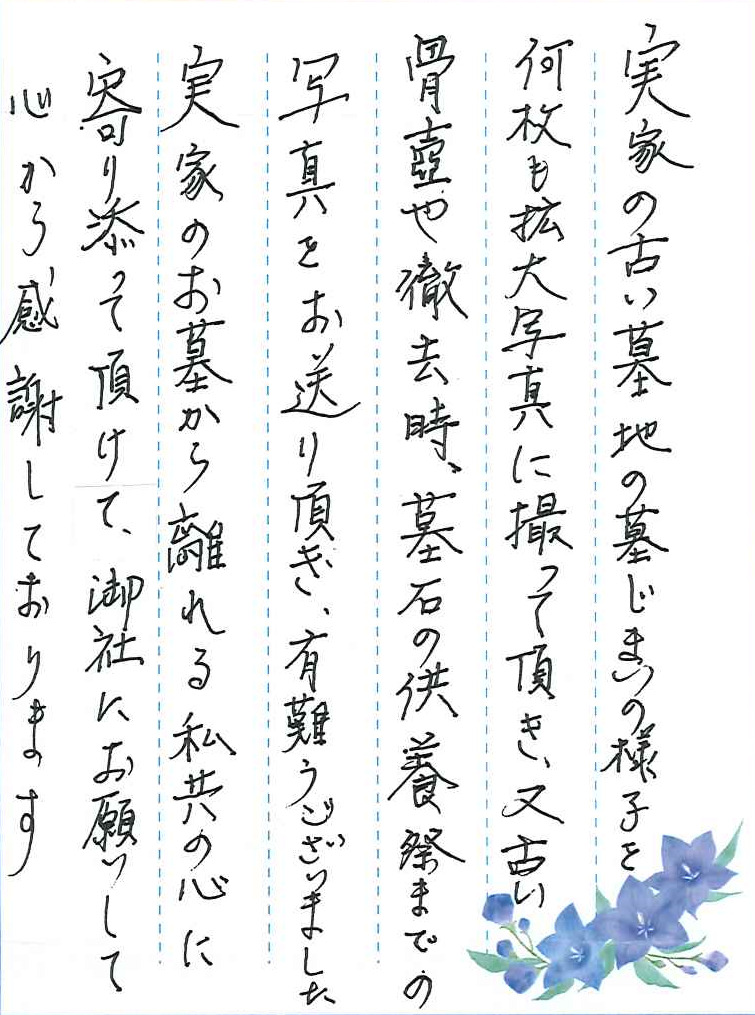 実家の古い墓地の墓じまいの様子を
何枚も拡大写真に撮って頂き、又古い
骨壺や徹去時、墓石の供養祭までの
写真をお送り頂き、有難うございました
実家のお墓から離れる私共の心に
寄り添って頂けて、御社にお願いして
心から感謝しております